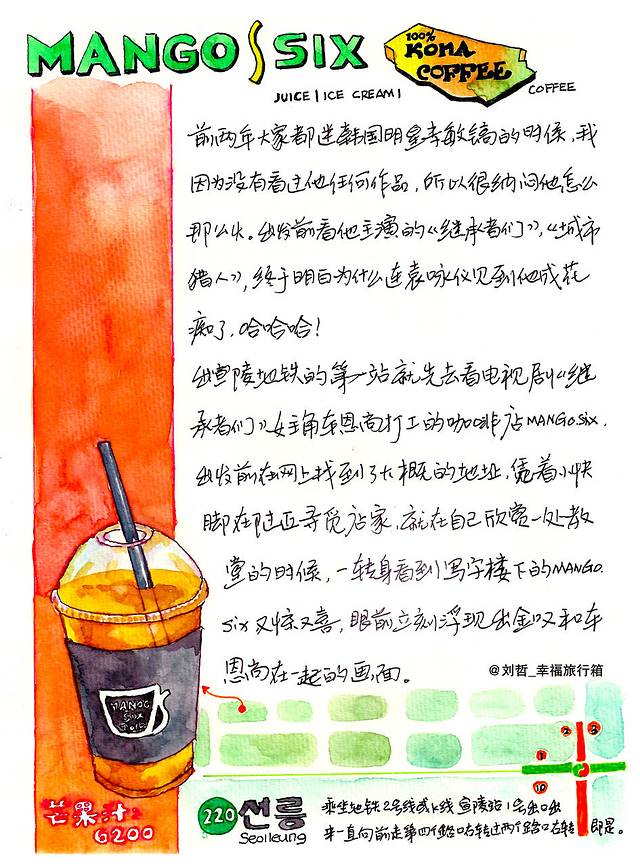 MANGO SIX
100%
KONA
COFFEE
JUICE | ICE CREAM |
COFFEE
前两年大家都迷韩国明星李敏镐的时候,我
因为没有看过他任何作品,所以很纳闷他怎么
那么火。出发前看他主演的《继承者们》,《城市
猎人》,终于明白为什么连袁咏仪见到他成花
痴了,哈哈哈!
出宣陵地铁的第一站就先去看电视剧《继
承者们》女主角车恩尚打工的咖啡店MANGO SIX.
出发前在网上找到了大概的地址,凭着小快
脚在附近寻觅店家,就在自己欣赏一处教
堂的时候,一转身看到写字楼下的MANGO.
Six又惊又喜,眼前立刻浮现出金叹和车
恩尚在一起的画面。
@刘哲_幸福旅行箱
MANGO
Six
2
3
1
10
芒果汁
6200
220
선릉
Seolleung
乘坐地铁2号线或K线宣陵站1号出口出
来一直向前走第四个路口右转过两个路口右转 即是。